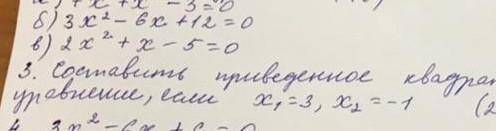 x - 3 = 0
б) 3x² - 6x + 12 = 0
в) 2x² + x - 5 = 0
3. Составить приведенное квадрат
уравнение, если x₁ = 3, x₂ = -1 (2
4. 3x² - 6x + c = 0